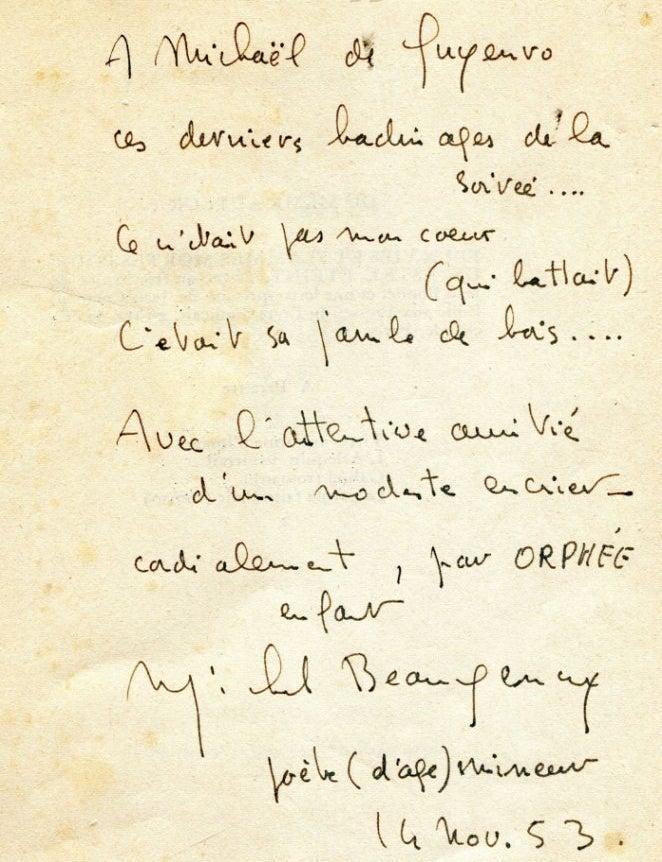 A Michaël de Guyenro
ces derniers badinages de la
soirée....
Ce n'était pas mon coeur
(qui battait)
C'était sa jambe de bois....
Avec l'attentive amitié
d'un modeste encrier_
cordialement, par ORPHÉE
enfant
Michel Beaugency
poète (d'âge) mineur
14 Nov. 53.